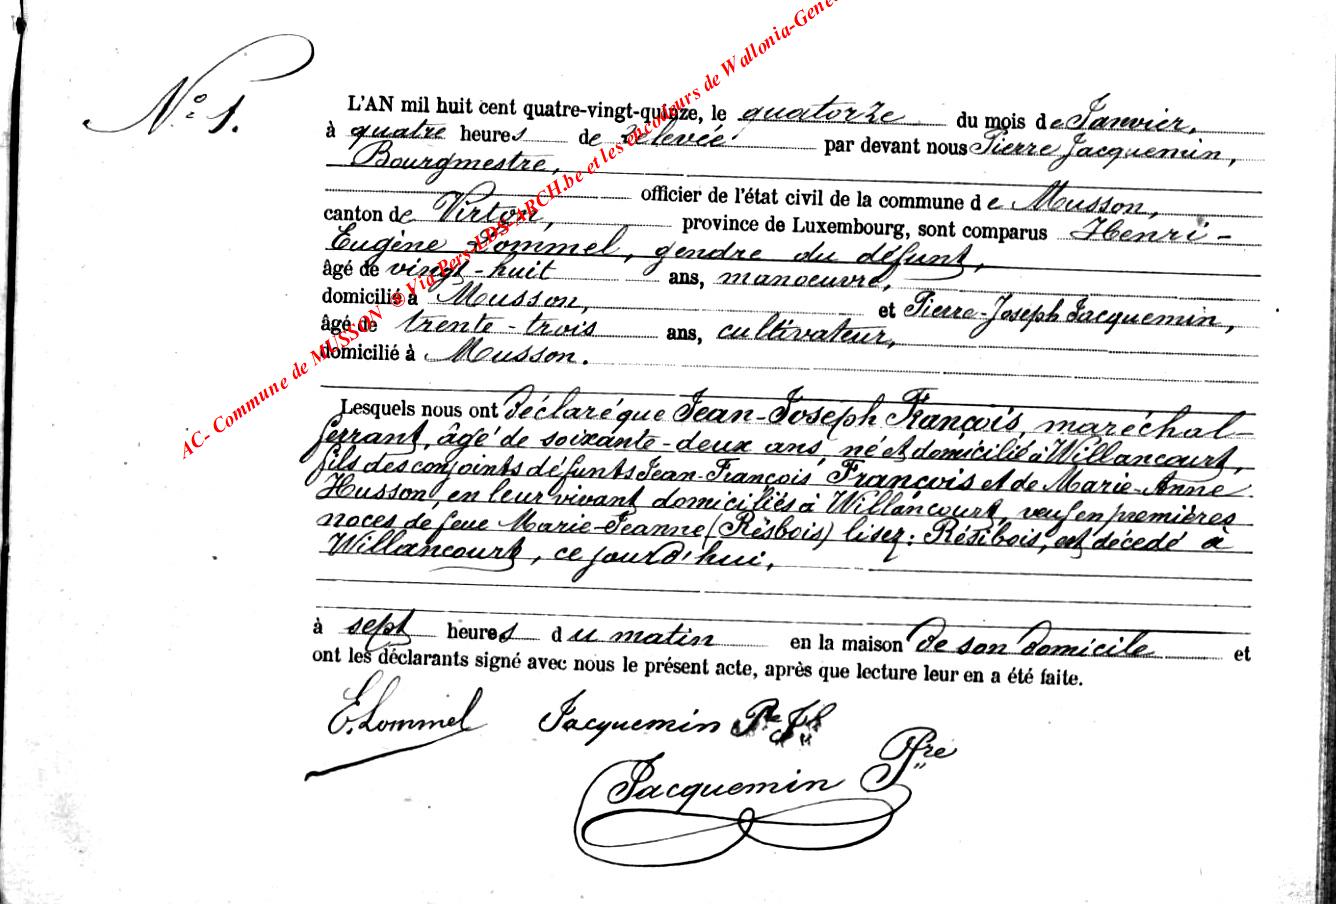 N.º 1.
L'AN mil huit cent quatre-vingt-quinze, le quatorze du mois de Janvier,
à quatre heures de relevée par devant nous Pierre Jacquemin,
Bourgmestre,
officier de l'état civil de la commune de Musson,
canton de Virton, province de Luxembourg, sont comparus Henri-
Eugène Lommel, gendre du défunt,
âgé de vingt-huit ans, manoeuvre,
domicilié à Musson, et Pierre-Joseph Jacquemin,
âgé de trente-trois ans, cultivateur,
domicilié à Musson.
Lesquels nous ont déclaré que Jean-Joseph François, maréchal-
ferrant, âgé de soixante-deux ans, né et domicilié à Willancourt,
fils des conjoints défunts Jean-François François et de Marie-Anne
Husson, en leur vivant domiciliés à Willancourt, veuf en premières
noces de feue Marie-Jeanne (Résbois) lisez: Résibois, est décédé à
Willancourt, ce jourd'hui,
à sept heures du matin en la maison de son domicile et
ont les déclarants signé avec nous le présent acte, après que lecture leur en a été faite.
E. Lommel Jacquemin Pre Jh
Jacquemin Pre
AC- Commune de MUSSON © Via Pers-LDS-ARCH.be et les encodeurs de Wallonia-Gene